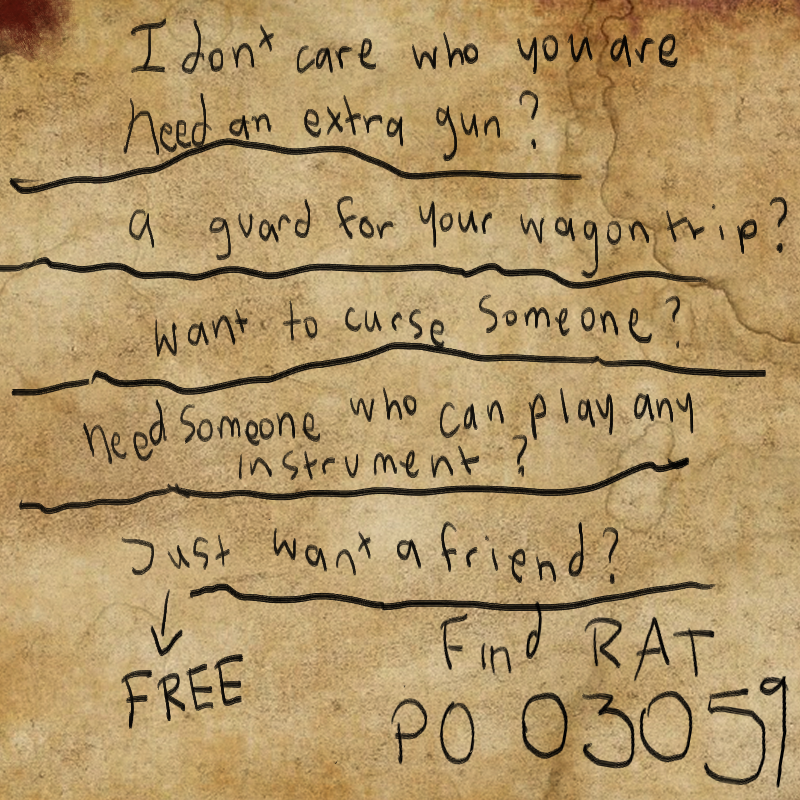 I don't care who you are
need an extra gun?
a guard for your wagon trip?
want to curse someone?
need someone who can play any
instrument?
Just want a friend?
FREE
Find RAT
PO 03059